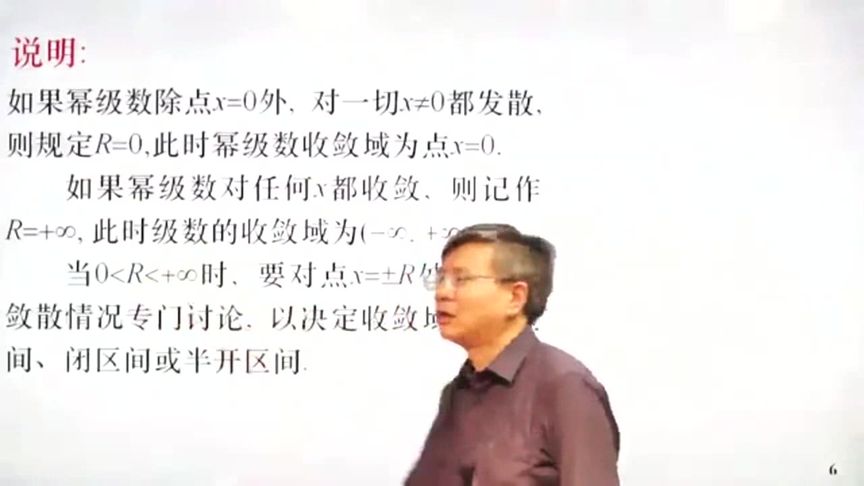 说明:
如果幂级数除点x=0外, 对一切x≠0都发散,
则规定R=0,此时幂级数收敛域为点x=0.
如果幂级数对任何x都收敛, 则记作
R=+∞, 此时级数的收敛域为(-∞, +∞
当0<R<+∞时, 要对点x=±R处
敛散情况专门讨论, 以决定收敛域
间、闭区间或半开区间.
6